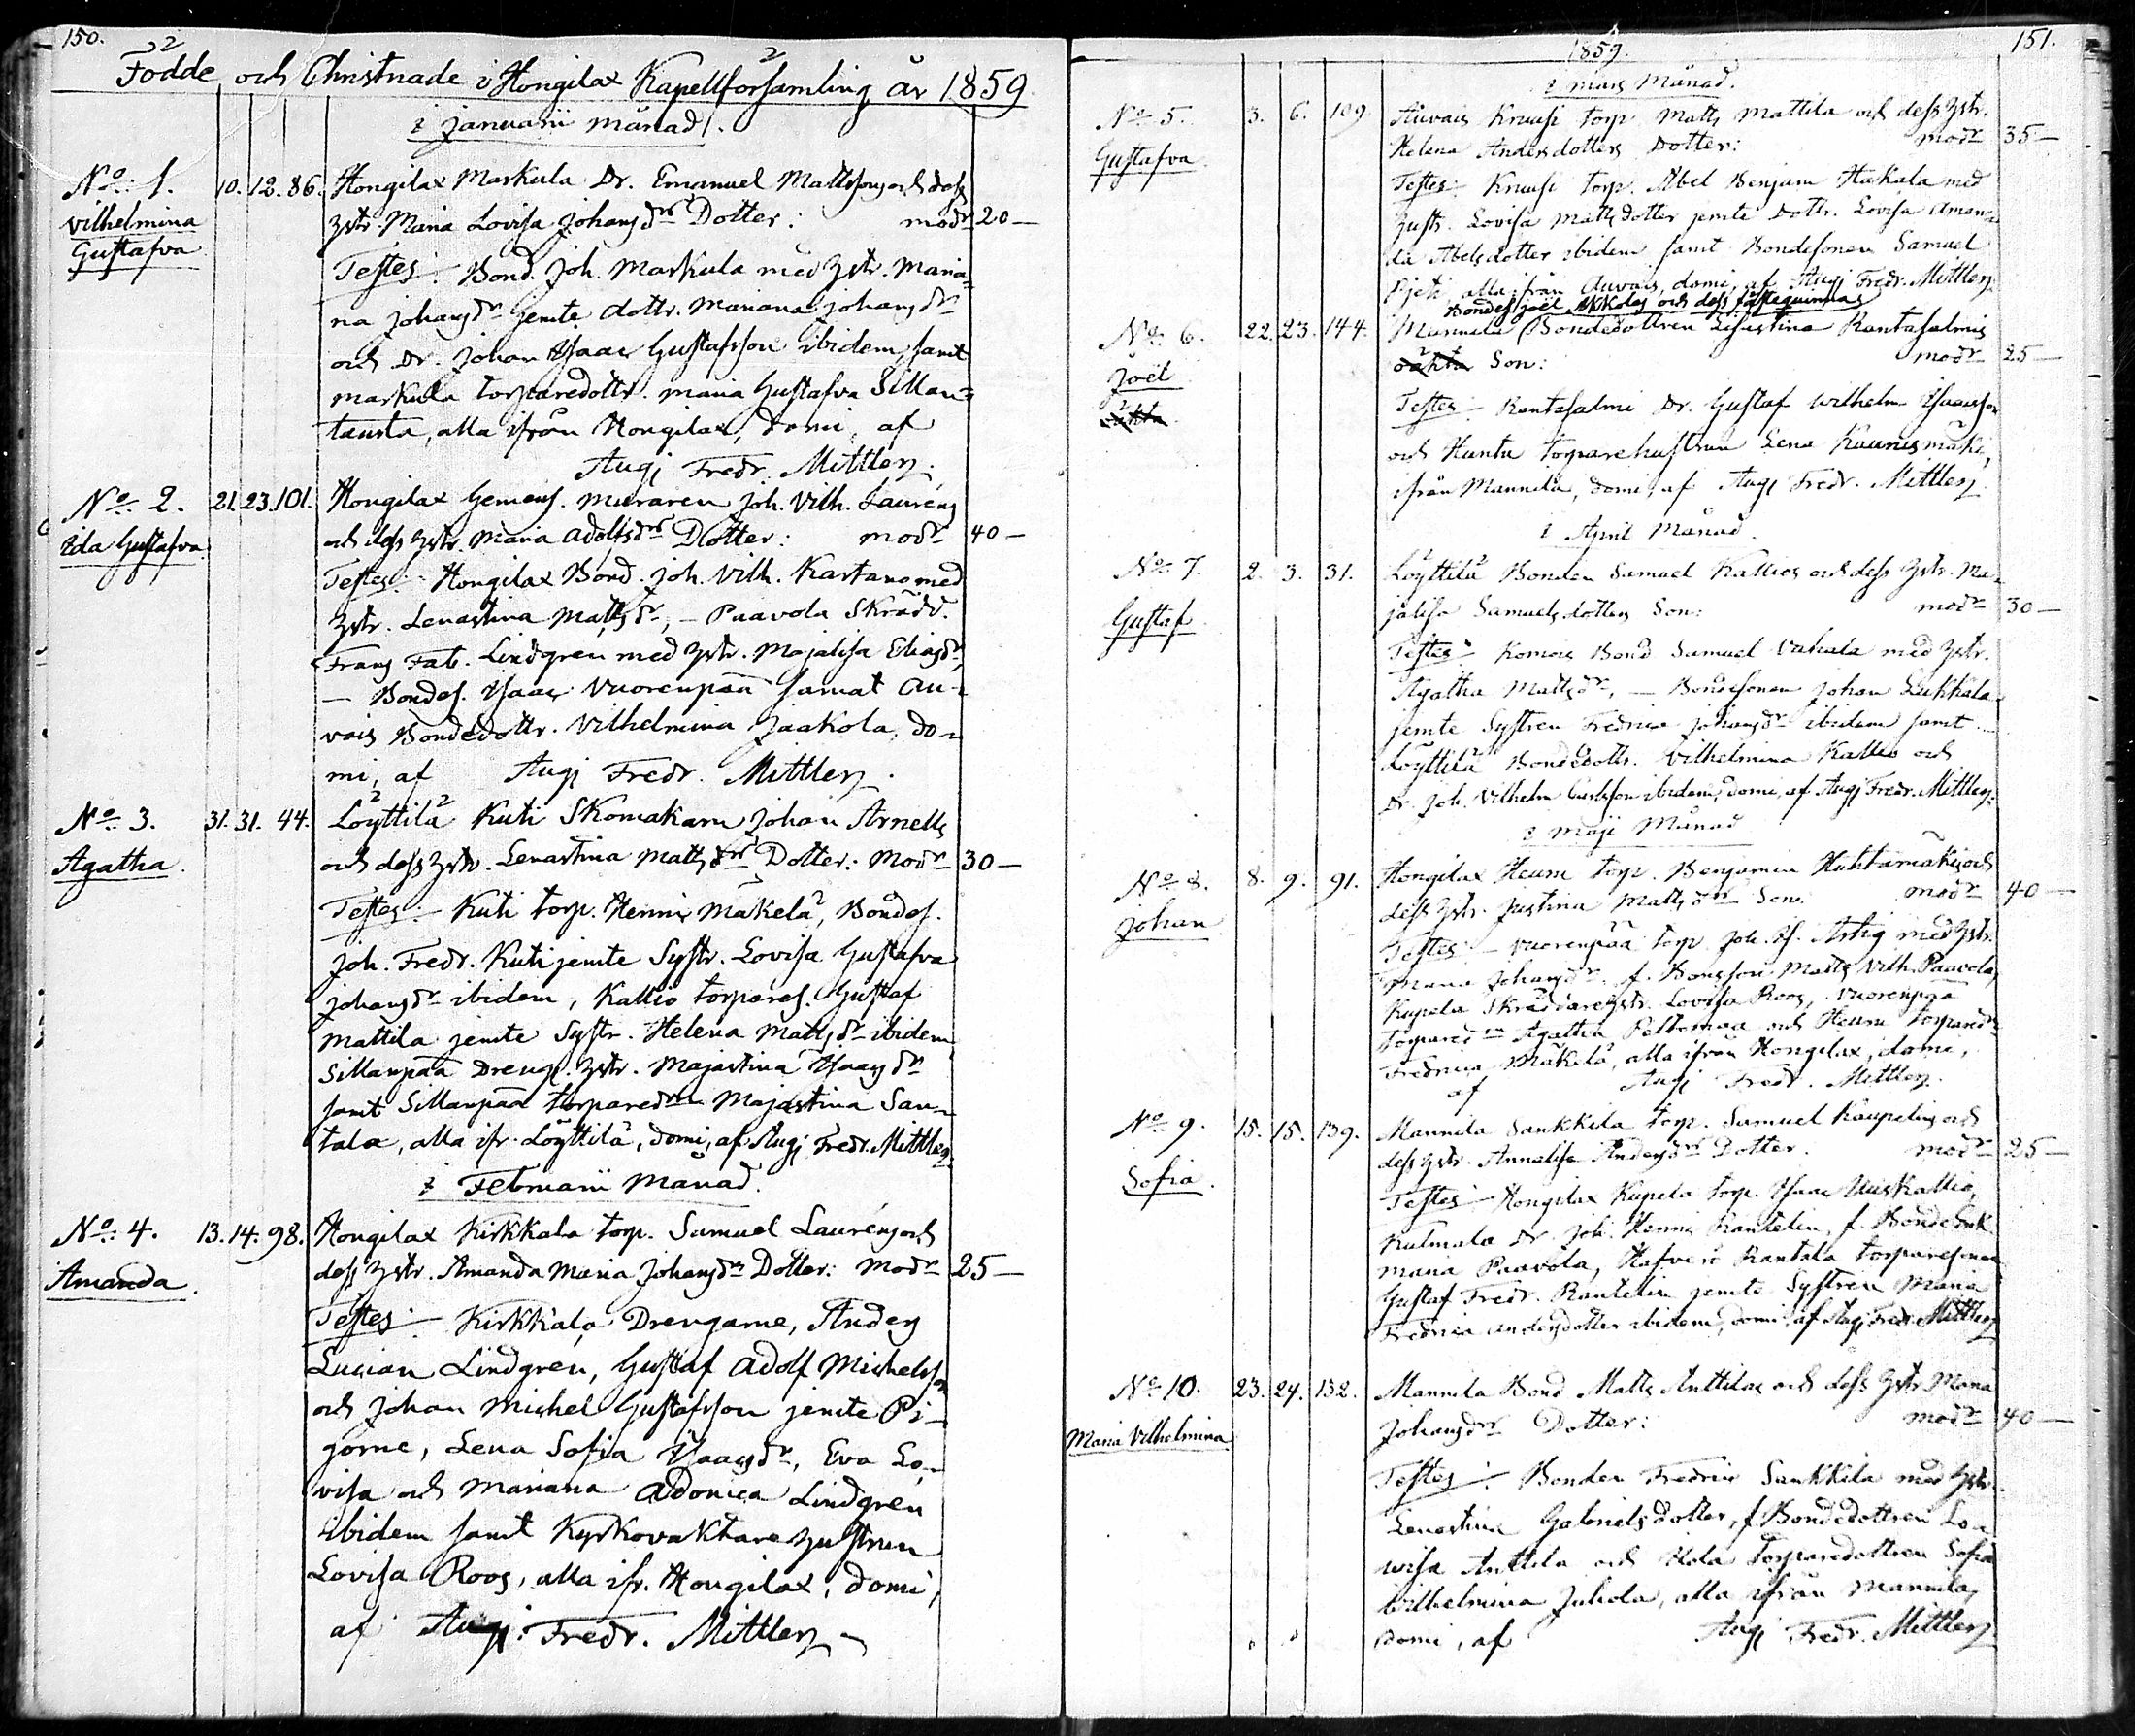 150.
Födde och Christnade i Hongilax Kapellförsamling år 1859
i Januarii månad.
No 1. 10. 12. 86. Hongilax Markula Dr. Emanuel Mattsson och dess
Vilhelmina hstr Maria Lovisa Johansdrs Dotter: modr 20 —
Gustafva
Testes: Bond. Joh. Markula med hstr. Maria-
na Johansdr jemte dottr. Mariana Johansdr
och Dr. Johan Isaac Gustafsson ibidem, samt
Markula torparedottr. Maria Gustafva Sillan-
tausta, alla ifrån Hongilax, domi, af
Aug: Fredr. Mittler
No 2. 21. 23. 101. Hongilax Gemens. muraren Joh. Vilh. Lauréns
Ida Gustafva och dess hstr. Maria Adolfsdrs Dotter: modr 40 —
Testes: Hongilax Bond. Joh. Vilh. Kartano med
hstr. Lenastina Mattsdr, — Paavola Skrädd.
Frans Fab. Lindgren med hstr. Majalisa Eliasdr,
— Bondes. Isaac Vuorenpää samt Au-
vais Bondedottr. Vilhelmina Jaakola, do-
mi, af Aug: Fredr. Mittler.
No 3. 31. 31. 44. Löyttilä Kuti Skomakarn Johan Arnells
Agatha. och dess hstr. Lenastina Mattsdrs Dotter: Modr 30 —
Testes: Kuti torp. Henric Mäkelä, Bondes.
Joh. Fredr. Kuti jemte Systr. Lovisa Gustafva
Johansdr ibidem, Kallio torpares. Gustaf
Mattila jemte Systr. Helena Mattsdr ibidem
Sillanpää Drengh. hstr. Majastina Isaacsdr
samt Sillanpää torparedrn Majastina San-
tala, alla ifr. Löyttilä, domi, af Aug: Fredr. Mittler
i Februarii Månad.
No 4. 13. 14. 98. Hongilax Kirkkala torp. Samuel Lauréns och
Amanda. dess hstr. Amanda Maria Johansdrs Dotter: Modr 25 —
Testes: Kirkkala Drengarne, Anders
Lucian Lindgren, Gustaf Adolf Michelsson
och Johan Michel Gustafsson jemte Pi-
gorne, Lena Sofia Isaacsdr, Eva Lo-
visa och Mariana Adonica Lindgren
ibidem samt Kyrkovaktare hustrun
Lovisa Roos, alla ifr. Hongilax, domi,
af Aug: Fredr. Mittler
151.
1859.
i Mars Månad.
No 5. 3. 6. 109 Auvais Knuusi torp. Matts Mattila och dess hstr.
Gustafva Helena Andersdotters Dotter: modr 35 —
Testes: Knuusi torp. Abel Benjam Hakala med
hustr. Lovisa Mattsdotter jemte Dottr. Lovisa Aman-
da Abelsdotter ibidem samt Bondesonen Samuel
alla ifrån Auvais, domi, af Aug: Fredr. Mittler
Bondes Joël Ackolas och dess fästeqvinnas
No 6. 22. 23. 144. Mannila Bondedottren Lisastina Rantasalmis
Joël oäkta Son: modr 25 —
oäkta
Testes: Rantasalmi Dr. Gustaf Wilhelm Isaacsson
och Huntu torparehustrun Lena Kaunismäki,
ifrån Mannila, domi, af Aug: Fredr. Mittler
i April Månad.
No 7. 2. 3. 31. Löyttilä Bonden Samuel Kallios och dess hstr. Ma-
Gustaf jalisa Samuelsdotters Son: modr 30 —
Testes: Bond Samuel Vahala med hstr.
Agatha Mattsdr, — Bondesonen Johan Lukkala
jemte Systren Fredrica Johansdr ibidem samt
Löyttilä Bondedottr. Vilhelmina Kallio och
Dr. Joh. Vilhelm Carlsson ibidem, domi, af Aug: Fredr. Mittler.
i Maji Månad
No 8. 8. 9. 91. Hongilax Heuru torp. Benjamin Huhtamäkis och
Johan dess hstr. Justina Mattsdrs Son: modr 40 —
Testes: Vuorenpää torp. Joh. Is. Artig med hstr.
Maria Johansdr, f. Bondson Matts Vilh. Paavola,
Kupela Skräddarehstr. Lovisa Roos, Vuorenpää
torparedrn Agatha Peltomaa och Heuru torparedr
Fredrica Mäkelä, alla ifrån Hongilax, domi,
af Aug: Fredr. Mittler.
No 9. 15. 15. 139. Mannila Sankkila torp. Samuel Kaupelins och
Sofia. dess hstr. Annalisa Andersdrs Dotter. modr 25 —
Testes: Hongilax Kupela torp. Isaac Uuskallio,
Kulmala Dr. Joh. Henric Rantelin, f. Bondeenk.
Maria Paavola, Rantala torparesonen
Gustaf Fredr. Rantelin jemte Systren Maria
Fredrica Andersdotter ibidem, domi, af Aug: Fredr. Mittler
No 10. 23. 24. 132. Mannila Bond Matts Anttilas och dess hstr Maria
Maria Vilhelmina Johansdrs Dotter: modr 40 —
Testes: Bonden Fredric Sankkila med hstr.
Lenastina Gabrielsdotter, f. Bondedottren Lo-
wisa Anttila och torparedottren Sofia
Wilhelmina Juhola, alla ifrån Mannila,
domi, af Aug: Fredr. Mittler